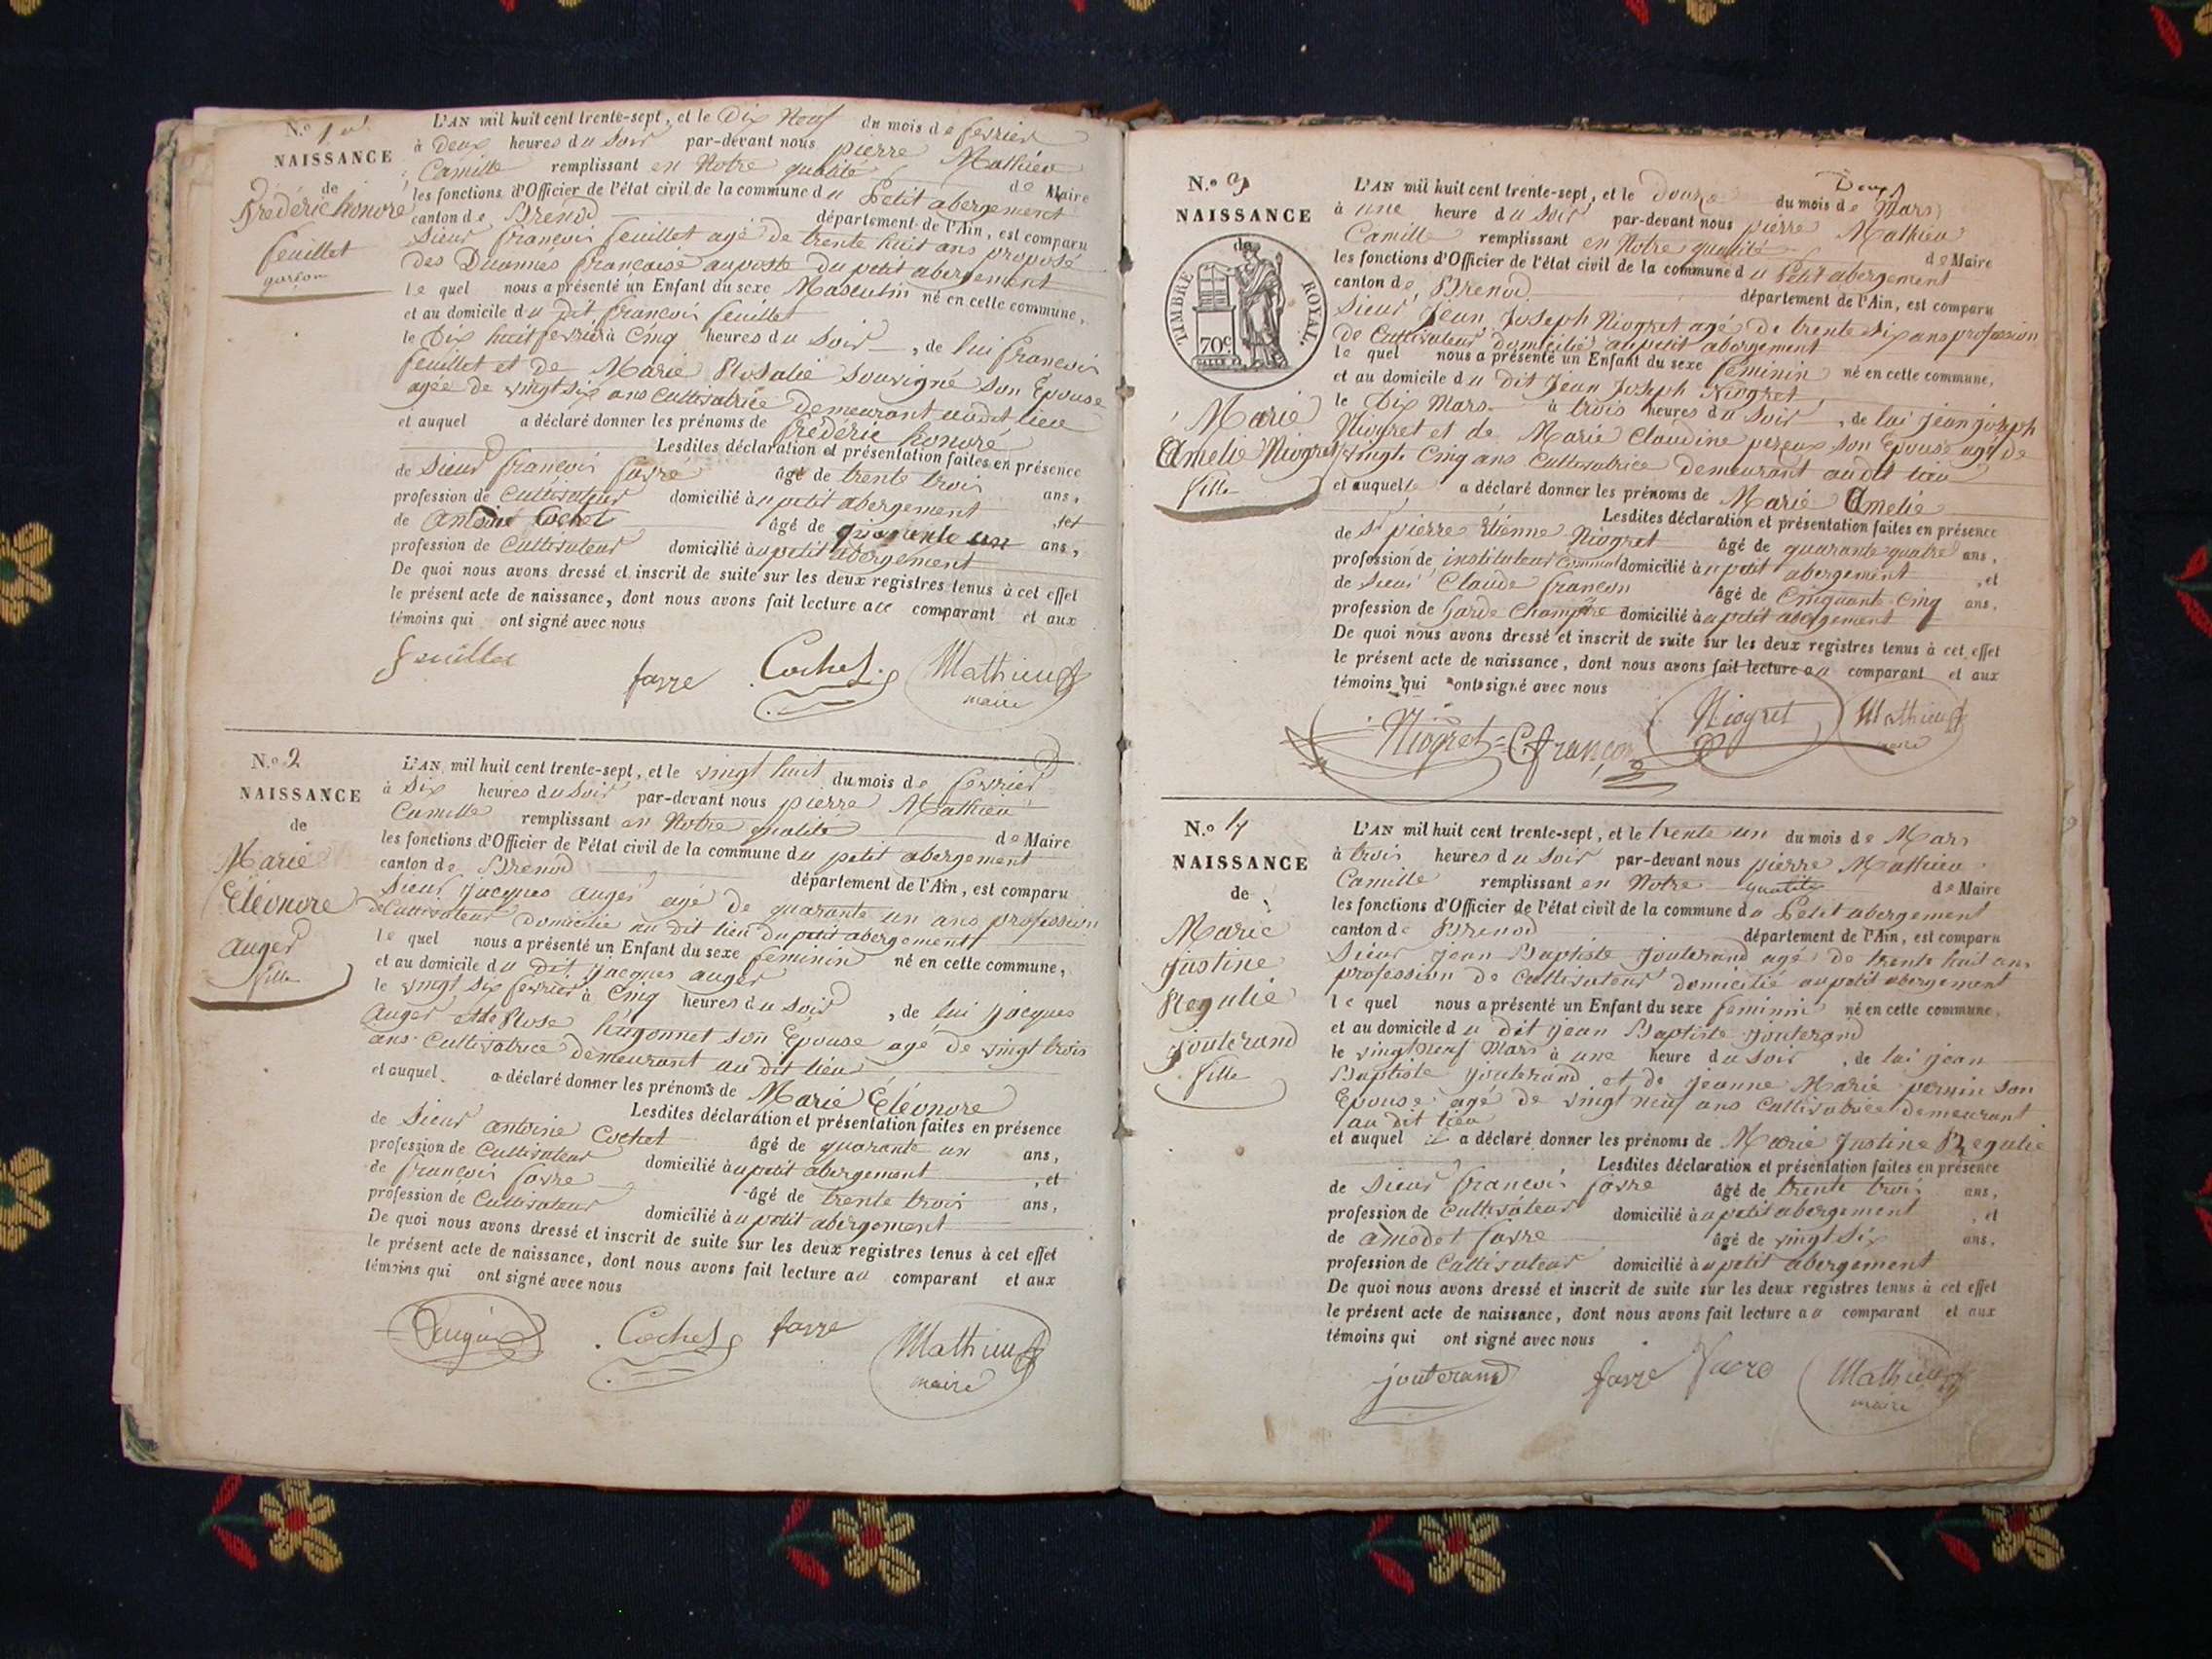 N.o 1er
NAISSANCE
de
Frédéric honoré
feuillet
garçon
L'AN mil huit cent trente-sept, et le Dix Neuf du mois de fevrier
à Deux heures du Soir par-devant nous pierre Mathieu
Camille remplissant en Notre qualité de Maire
les fonctions d'Officier de l'état civil de la commune du Petit abergement
canton de Brenod département de l'Ain, est comparu
Sieur françois feuillet agé de trente huit ans proposé
des Douannes françaisé au poste du petit abergement
le quel nous a présenté un Enfant du sexe Masculin né en cette commune,
et au domicile du dit françois feuillet
le Dix huit fevrier à Cinq heures du Soir, de lui françois
feuillet et de Marie Rosalie Souvigné Son Epouse
agée de vingt six ans Cultivatrice demeurant audit lieu
et auquel a déclaré donner les prénoms de frédéric honoré
Lesdites déclaration et présentation faites en présence
de Sieur françois favre âgé de trente trois ans,
profession de Cultivateur domicilié au petit abergement, et
de antoine Cochet âgé de quarante un ans,
profession de Cultivateur domicilié au petit abergement
De quoi nous avons dressé et inscrit de suite sur les deux registres tenus à cet effet
le présent acte de naissance, dont nous avons fait lecture au comparant et aux
témoins qui ont signé avec nous
feuillet favre Cochet Mathieu
maire
N.o 2
NAISSANCE
de
Marie
Eléonore
auger
fille
L'AN mil huit cent trente-sept, et le vingt huit du mois de fevrier
à Six heures du Soir par-devant nous pierre Mathieu
Camille remplissant en Notre qualité de Maire
les fonctions d'Officier de l'état civil de la commune du petit abergement
canton de Brenod département de l'Ain, est comparu
Sieur jacques auger agé de quarante un ans profession
de Cultivateur domicilié au dit lieu du petit abergement
le quel nous a présenté un Enfant du sexe feminin né en cette commune,
et au domicile du dit jacques auger
le vingt six fevrier à Cinq heures du Soir, de lui jacques
auger et de Rose hugonnet son Epouse agé de vingt trois
ans Cultivatrice demeurant au dit lieu
et auquel a déclaré donner les prénoms de Marie Eléonore
Lesdites déclaration et présentation faites en présence
de Sieur antoine Cochet âgé de quarante un ans,
profession de Cultivateur domicilié au petit abergement, et
de françois favre âgé de trente trois ans,
profession de Cultivateur domicilié au petit abergement
De quoi nous avons dressé et inscrit de suite sur les deux registres tenus à cet effet
le présent acte de naissance, dont nous avons fait lecture au comparant et aux
témoins qui ont signé avec nous
Cochet favre Mathieu
maire
N.o 3
NAISSANCE
de
TIMBRE ROYAL.
70c
Marie
Amelie Niogret
fille
L'AN mil huit cent trente-sept, et le douze du mois de Mars
à une heure du Soir par-devant nous pierre Mathieu
Camille remplissant en Notre qualité de Maire
les fonctions d'Officier de l'état civil de la commune du Petit abergement
canton de Brenod département de l'Ain, est comparu
Sieur Jean Joseph Niogret agé de trente Six ans profession
de Cultivateur domicilié au petit abergement
le quel nous a présenté un Enfant du sexe feminin né en cette commune,
et au domicile du dit Jean Joseph Niogret
le Dix Mars à trois heures du Soir, de lui Jean joseph
Niogret et de Marie Claudine pereux son Epouse agé de
vingt Cinq ans Cultivatrice demeurant au dit lieu
et auquelle a déclaré donner les prénoms de Marie Amelie
Lesdites déclaration et présentation faites en présence
de Sr pierre Etienne Niogret âgé de quarante quatre ans,
profession de instituteur Communal domicilié au petit abergement, et
de Sieur Claude françon âgé de Cinquante Cinq ans.
profession de Garde Champêtre domicilié au petit abergement
De quoi nous avons dressé et inscrit de suite sur les deux registres tenus à cet effet
le présent acte de naissance, dont nous avons fait lecture au comparant et aux
témoins qui ont signé avec nous
Niogret Cfrançon Niogret Mathieu
maire
N.o 4
NAISSANCE
de
Marie
Justine
Regulie
jouterand
fille
L'AN mil huit cent trente-sept, et le trente un du mois de Mars
à trois heures du Soir par-devant nous pierre Mathieu
Camille remplissant en Notre qualité de Maire
les fonctions d'Officier de l'état civil de la commune du Petit abergement
canton de Brenod département de l'Ain, est comparu
Sieur Jean Baptiste jouterand agé de trente huit ans
profession de Cultivateur domicilié au petit abergement
le quel nous a présenté un Enfant du sexe feminin né en cette commune,
et au domicile du dit jean Baptiste jouterand
le vingt neuf Mars à une heure du Soir, de lui jean
Baptiste jouterand et de jeanne Marie pernin son
Epouse agé de vingt neuf ans Cultivatrice demeurant
au dit lieu
et auquel il a déclaré donner les prénoms de Marie Justine Regulie
Lesdites déclaration et présentation faites en présence
de Sieur françois favre âgé de trente trois ans,
profession de Cultivateur domicilié au petit abergement, et
de amedet favre âgé de vingt Six ans.
profession de Cultivateur domicilié au petit abergement
De quoi nous avons dressé et inscrit de suite sur les deux registres tenus à cet effet
le présent acte de naissance, dont nous avons fait lecture au comparant et aux
témoins qui ont signé avec nous
jouterand favre favre Mathieu
maire